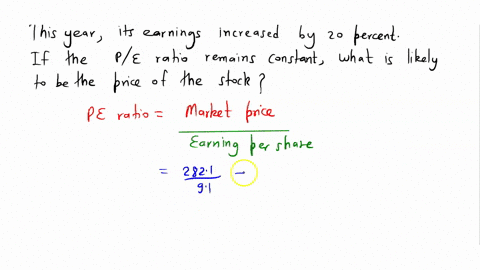 This year, its earnings increased by 20 percent.
If the P/E ratio remains constant, what is likely
to be the price of the stock?
PE ratio = Market price
Earning per share
= 282.1
9.1